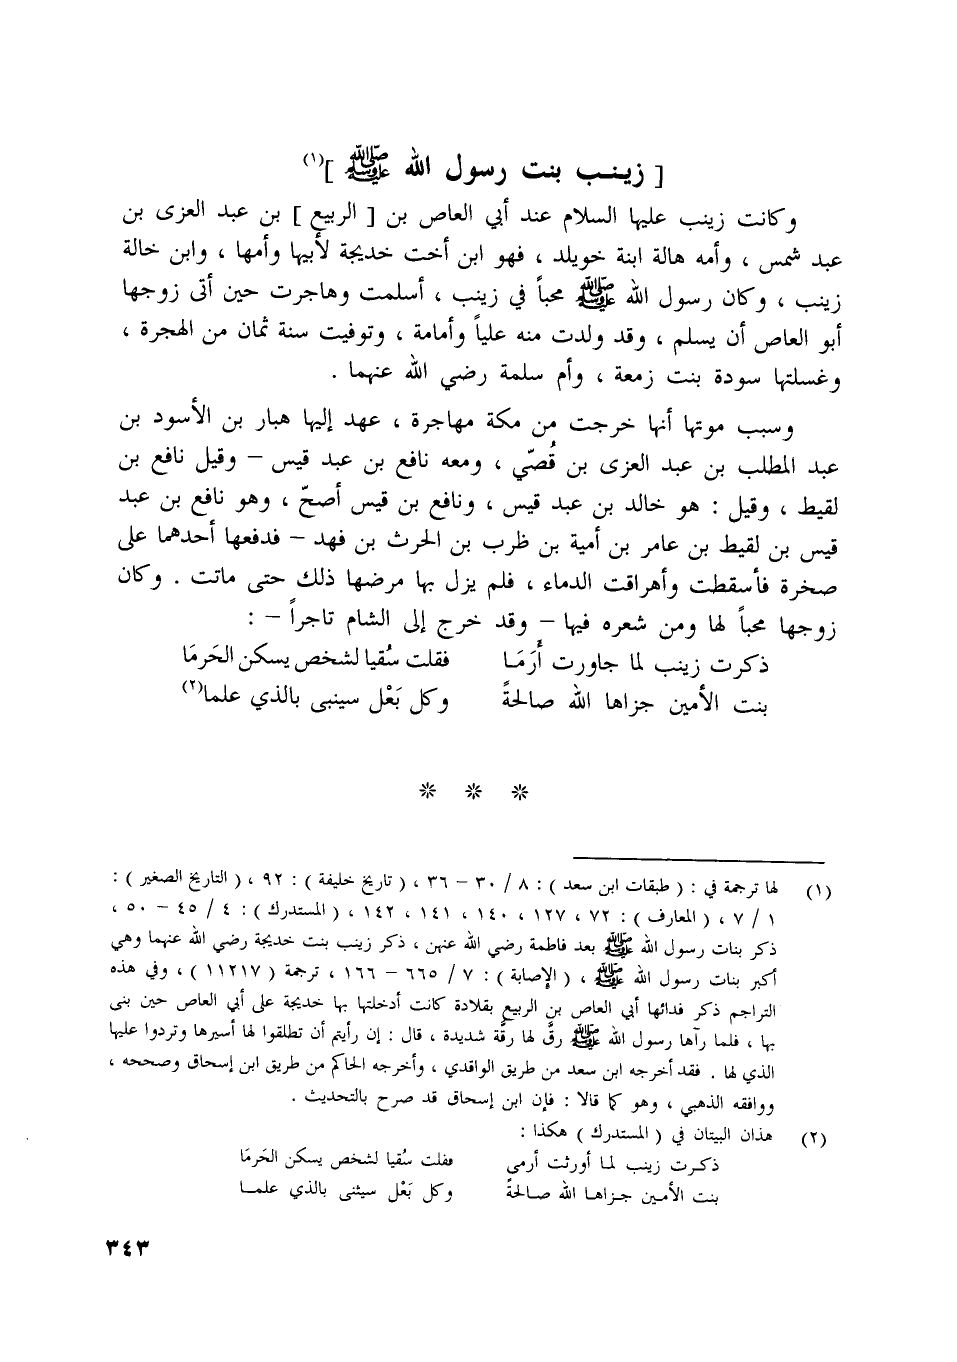 [ زينب بنت رسول الله ﷺ ](١)
وكانت زينب عليها السلام عند أبي العاص بن [ الربيع ] بن عبد العزى بن
عبد شمس ، وأمه هالة ابنة خويلد ، فهو ابن أخت خديجة لأبيها وأمها ، وابن خالة
زينب ، وكان رسول الله ﷺ محباً في زينب ، أسلمت وهاجرت حين أتى زوجها
أبو العاص أن يسلم ، وقد ولدت منه علياً وأمامة ، وتوفيت سنة ثمان من الهجرة ،
وغسلتها سودة بنت زمعة ، وأم سلمة رضي الله عنهما .
وسبب موتها أنها خرجت من مكة مهاجرة ، عهد إليها هبار بن الأسود بن
عبد المطلب بن عبد العزى بن قُصّي ، ومعه نافع بن عبد قيس – وقيل نافع بن
لقيط ، وقيل : هو خالد بن عبد قيس ، ونافع بن قيس أصحّ ، وهو نافع بن عبد
قيس بن لقيط بن عامر بن أمية بن ظرب بن الحرث بن فهد – فدفعها أحدهما على
صخرة فأسقطت وأهراقت الدماء ، فلم يزل بها مرضها ذلك حتى ماتت . وكان
زوجها محباً لها ومن شعره فيها – وقد خرج إلى الشام تاجراً – :
ذكرت زينب لما جاورت أَرَمَا فقلت سُقيا لشخص يسكن الحَرمَا
بنت الأمين جزاها الله صالحةً وكل بَعْل سينبى بالذي علما(٢)
* * *
(١) لها ترجمة في : ( طبقات ابن سعد ) : ٨ / ٣٠ – ٣٦ ، ( تاريخ خليفة ) : ٩٢ ، ( التاريخ الصغير ) :
١ / ٧ ، ( المعارف ) : ٧٢ ، ١٢٧ ، ١٤٠ ، ١٤١ ، ١٤٢ ، ( المستدرك ) : ٤ / ٤٥ – ٥٠ ،
ذكر بنات رسول الله ﷺ بعد فاطمة رضي الله عنهن ، ذكر زينب بنت خديجة رضي الله عنهما وهي
أكبر بنات رسول الله ﷺ ، ( الإصابة ) : ٧ / ٦٦٥ – ١٦٦ ، ترجمة ( ١١٢١٧ ) ، وفي هذه
التراجم ذكر فدائها أبي العاص بن الربيع بقلادة كانت أدخلتها بها خديجة على أبي العاص حين بنى
بها ، فلما رآها رسول الله ﷺ رقَّ لها رقَّة شديدة ، قال : إن رأيتم أن تطلقوا لها أسيرها وتردوا عليها
الذي لها . فقد أخرجه ابن سعد من طريق الواقدي ، وأخرجه الحاكم من طريق ابن إسحاق وصححه ،
ووافقه الذهبي ، وهو كما قالا : فإن ابن إسحاق قد صرح بالتحديث .
(٢) هذان البيتان في ( المستدرك ) هكذا :
ذكرت زينب لما أورثت أرمى فقلت سُقيا لشخص يسكن الحَرمَا
بنت الأمين جزاها الله صالحةً وكل بَعْل سيثنى بالذي علما
٣٤٣